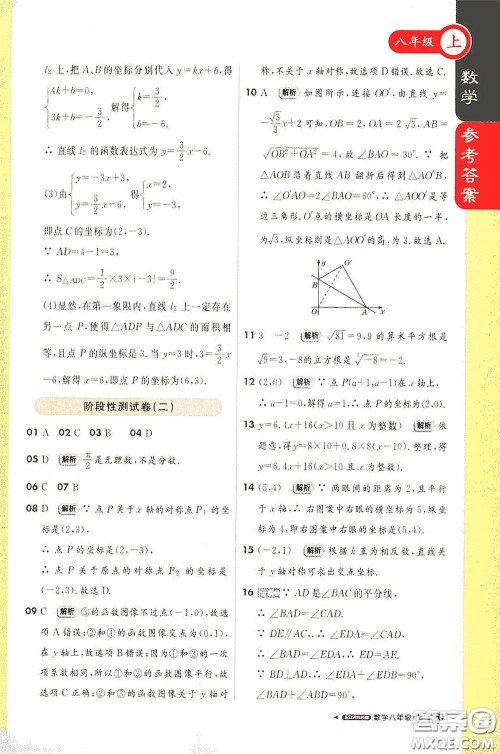 八年级 上
数学
参考答案
l₂上,把A,B的坐标分别代入y=kx+b,得
{4k+b=0, 3k+b=-3/2, 解得{k=3/2, b=-6.
∴直线l₂的函数表达式为y=3/2x-6.
(3)由{y=-3x+3, y=3/2x-6, 解得{x=2, y=-3,
即点C的坐标为(2,-3).
∵AD=4-1=3,
∴S△ADC=1/2×3×|-3|=9/2.
(4)显然,在第一象限内,直线l₂上一定存在
另一点P,使得△ADP与△ADC的面积相
等,且点P的纵坐标是3.当y=3时,3=3/2x
-6,解得x=6,即点P的坐标为(6,3).
阶段性测试卷(二)
01 A 02 C 03 B 04 D
05 D 解析 π/2是无理数,不是分数.
06 C 07 B
08 D 解析 ∵点P关于x轴的对称点P₁的坐
标为(2,3),
∴点P的坐标是(2,-3).
∴点P关于原点的对称点P₂的坐标是
(-2,3).故选D.
09 C 解析 ③的函数图像不过点(-1,0),故选
项A错误;②和④的函数图像交点为(0,1),
在y轴上,故选项B错误;①和②的一次
项系数相同,所以①和②的函数图像平行,故
选项C正确;②和③的函数图像关于y轴对
称,不关于x轴对称,故选项D错误.故选C.
10 A 解析 如图所示,连接OO′,由直线y=
-√3/3x+2可得A(2√3,0),B(0,2),∴AB=
√(OB²+OA²)=4.∴∠BAO=30°.∵把
△AOB沿着直线AB翻折后得到△AO′B,
∴∠O′AO=60°,AO′=AO.∴△AOO′是等
边三角形.O′点的横坐标是OA长度的一半,
为√3,纵坐标则是△AOO′的高为3.故选A.
y
O′
B
O A x
11 3 -2 解析 √81=9,9的算术平方根是
√9=3,-8的立方根是∛-8=-2.
12 (2,0) 解析 ∵点P(a+1,a-1)在x轴上,
∴a-1=0,解得a=1.
∴P(2,0).
13 y=6.4x+16(x>10且x为整数) 解析 依
题意,得y=200×0.8+(x-10)×8×0.8.整理,得
y=6.4x+16(x>10且x为整数).
14 (5,4) 解析 ∵两眼间的距离为2,且平行
于x轴,∴右图案中右眼的横坐标为5,纵坐
标为4.则右图案中右眼的坐标是(5,4).
15 (-2,1) 解析 根据k互为相反数,直线方
向改变但位置不变,故直线过定点(-2,1).
16 证明 ∵AD是∠BAC的平分线,
∴∠BAD=∠CAD.
∵DE∥AC,∴∠EDA=∠CAD.
∴∠BAD=∠EDA.∴AE=DE.
∵BD⊥AD,∴∠BAD+∠ABD=
∠EDA+∠BDE=90°.
数学八年级